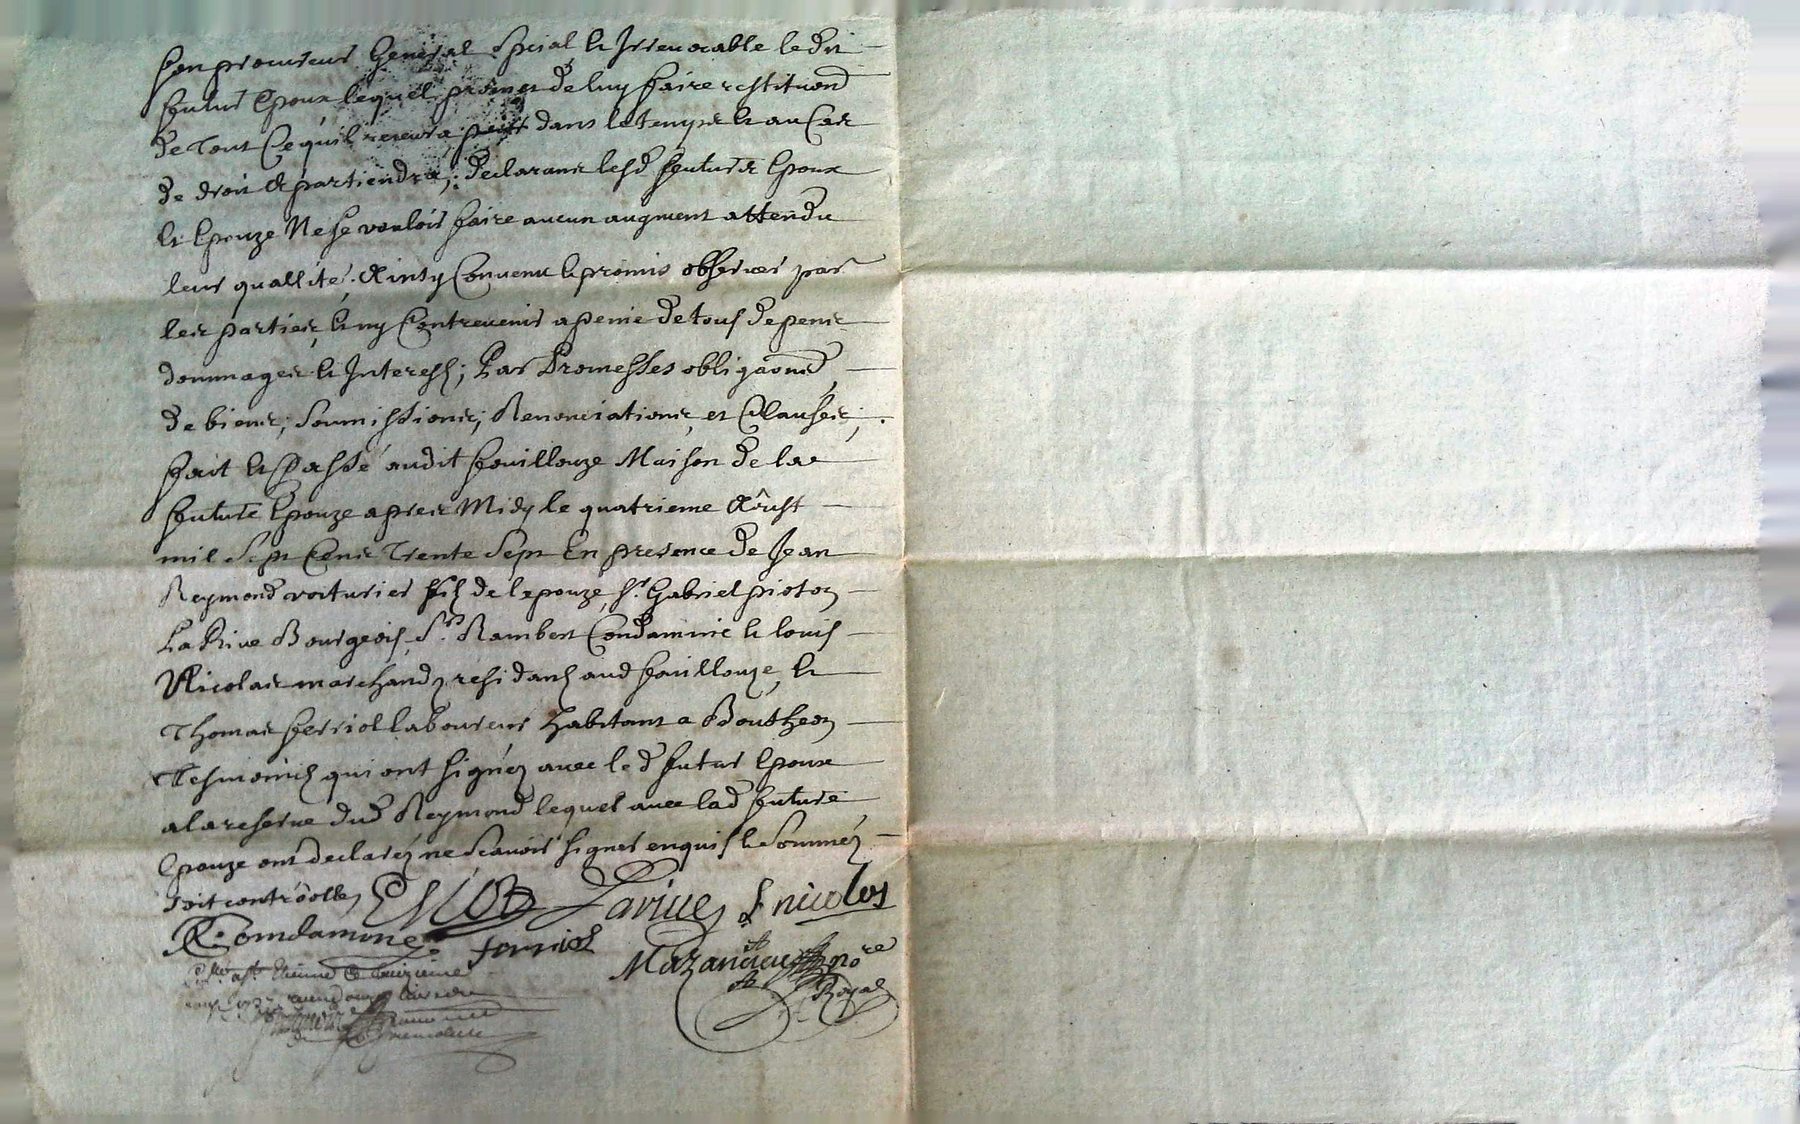 son procureur General Special et Irrevocable ledit
futur Epoux lequel promet de luy faire restituon
de Tout Ce quil recevra dans le temps et au Cas
de droit apartiendra; declarans lesd futurs Epoux
et Epouze Ne se vouloir faire aucun augment attendu
leur quallité. Ainsy Convenu et promis observer par
les parties, et ny Contrevenir a peine de tous depens
dommages et Interests; Par Promesses obligaons
de biens; Soumissions; Renonciations, et Clauses;
fait et Passé audit fouillouze Maison de la
future Epouze apres Midy le quatrieme Aôust
mil Sept Cens Trente Sept En presence de Jean
Reymond voiturier fils de lepouze, Sr. Gabriel pioton
La Rive Bourgeois, Sr. Rambert Condamine et louis
Nicolas marchands residans aud fouillouze, et
Thomas ferriol laboureur habitant a Boutheon
Tesmoins qui ont signéz avec led futur Epoux
a la reserve dud Reymond lequel avec lad future
Epouze ont declaréz ne Scavoir signer enquis et Sommés
soit controolle Larive L nicolas
R. Comdamine ferriol Mazancieu nore
Royal